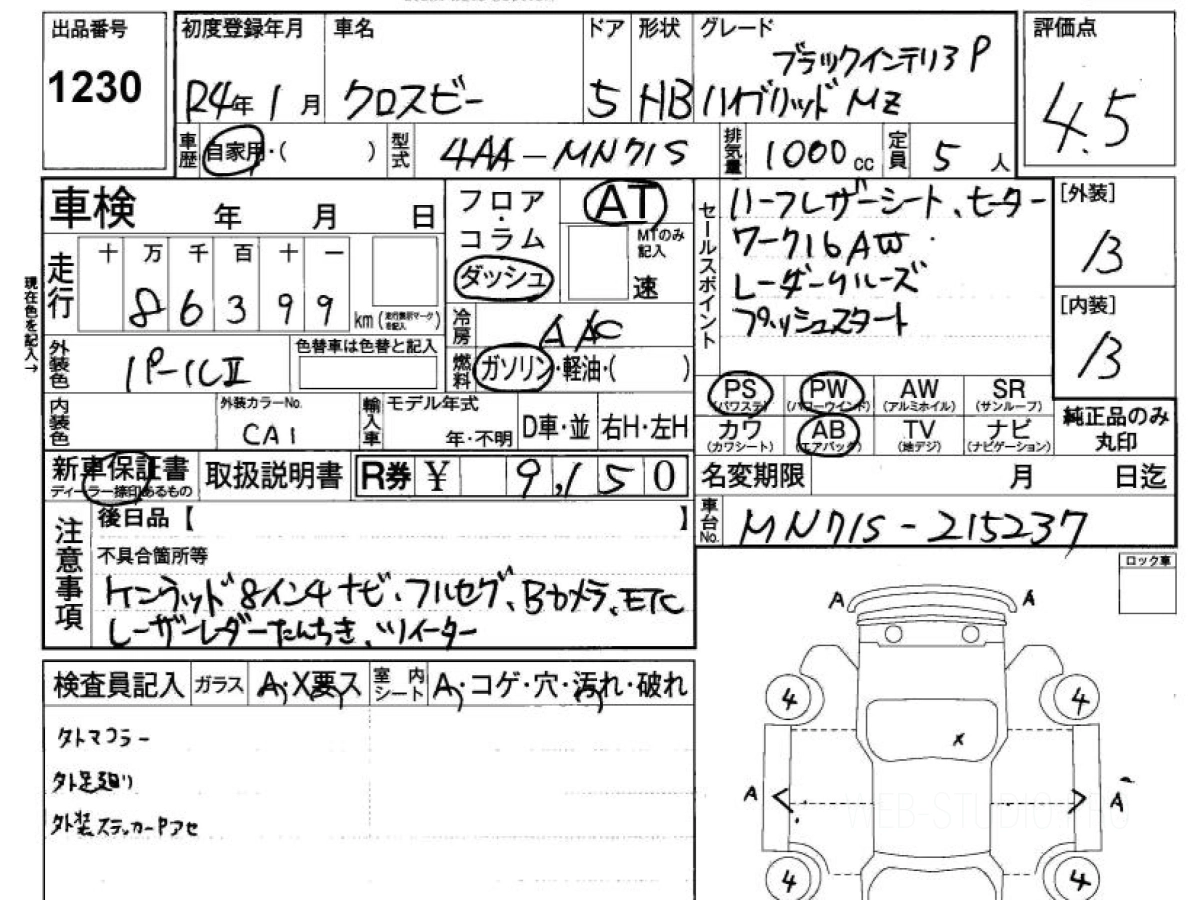 出品番号
1230
初度登録年月
R4年 1月
車名
クロスビー
ドア
5
形状
HB
グレード
ブラックインテリア P
ハイブリッド MZ
評価点
4.5
車歴
自家用・( )
型式
4AA-MN71S
排気量
1000 cc
定員
5 人
車検 年 月 日
フロア・コラム
ダッシュ
AT
MTのみ記入
速
セールスポイント
ハーフレザーシート、ヒーター
ワーク16AW
レーダークルーズ
プッシュスタート
[外装]
B
[内装]
B
現在色を記入→
走行
十 万 千 百 十 一
8 6 3 9 9
km (走行表示マークを記入)
冷房
AAC
燃料
ガソリン・軽油・( )
外装色
色替車は色替と記入
PS (パワステ)
PW (パワーウインド)
AW (アルミホイル)
SR (サンルーフ)
カワ (カワシート)
AB (エアバッグ)
TV (地デジ)
ナビ (ナビゲーション)
純正品のみ丸印
内装色
外装カラーNo.
CA1
輸入車
モデル年式
年・不明
D車・並
右H・左H
新車保証書
ディーラー捺印あるもの
取扱説明書
R券 ¥ 9,150
名変期限 月 日迄
車台No.
MN71S-215237
注意事項
後日品【 】
不具合箇所等
ケンウッド8インチナビ、フルセグ、Bカメラ、ETC
レーザーレダーたんちき、ツイーター
ロック車
検査員記入
ガラス
A・X要ス
室内シート
A・コゲ・穴・汚れ・破れ
外マフラー
外足廻り
外装ステッカーPアセ
A A
4 4
X
A A
4 4
WEB-STUDIO.PRO